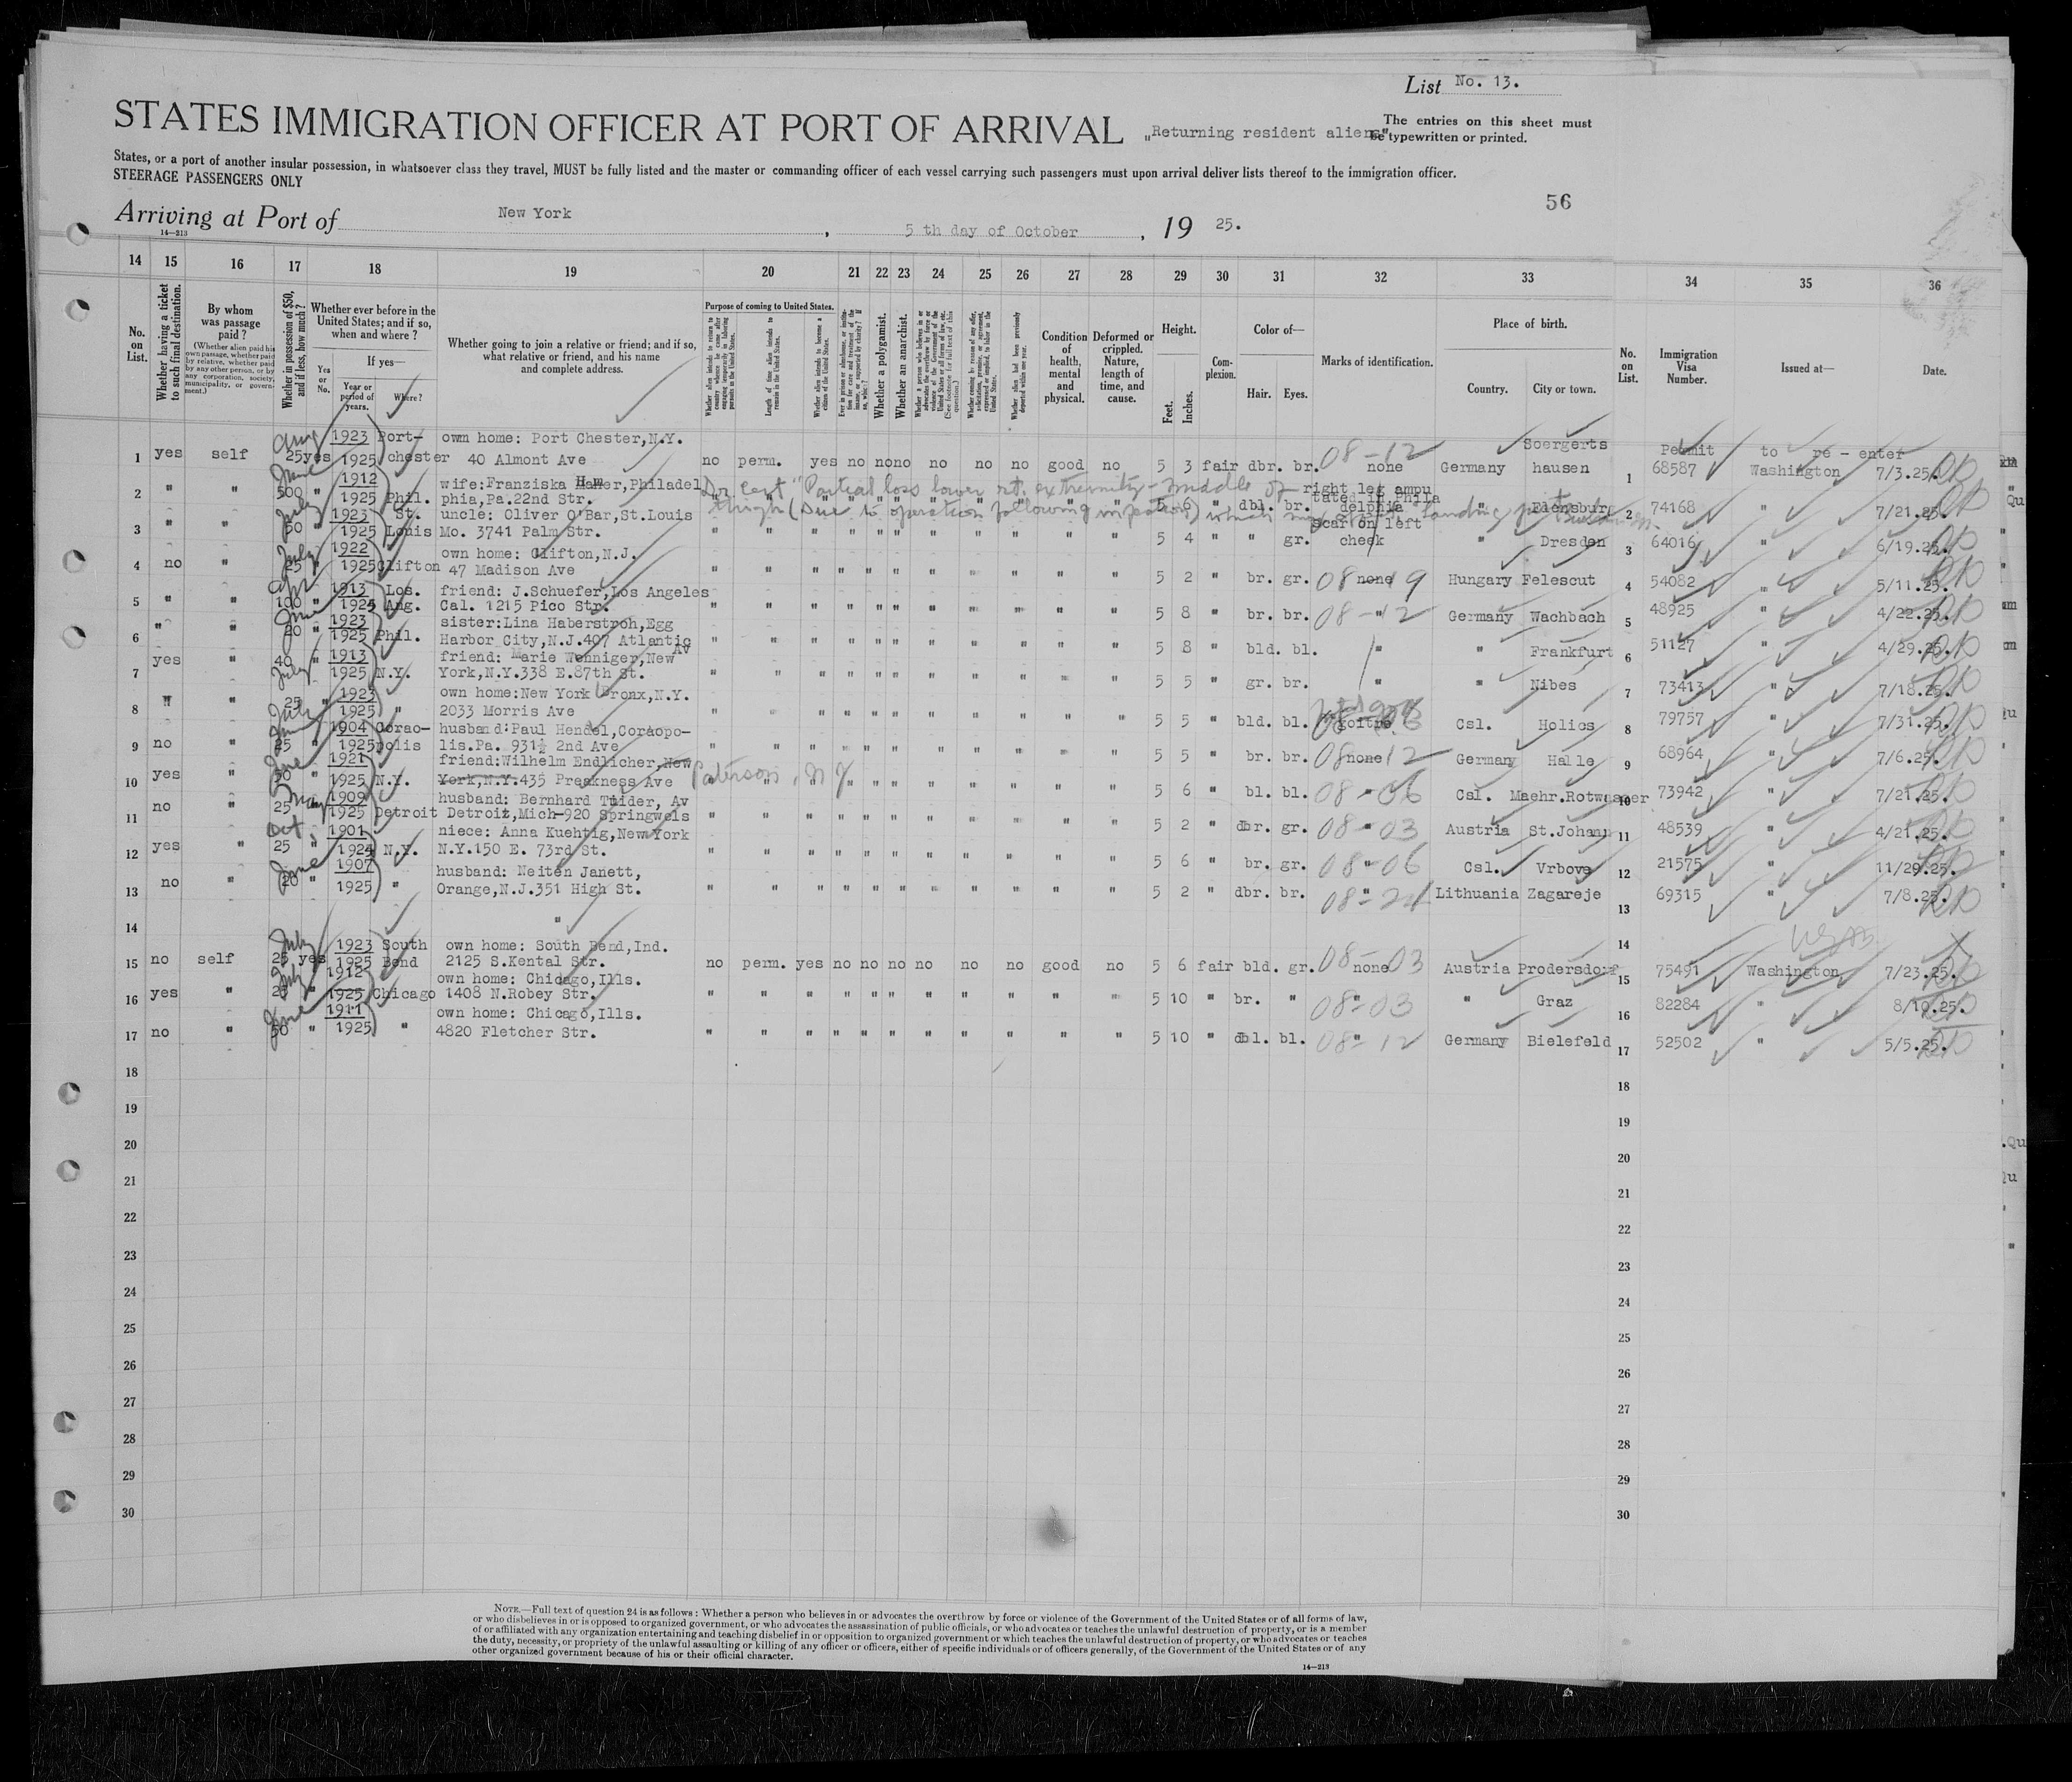 List No. 13.
STATES IMMIGRATION OFFICER AT PORT OF ARRIVAL "Returning resident aliens"
The entries on this sheet must
be typewritten or printed.
States, or a port of another insular possession, in whatsoever class they travel, MUST be fully listed and the master or commanding officer of each vessel carrying such passengers must upon arrival deliver lists thereof to the immigration officer.
STEERAGE PASSENGERS ONLY
56
Arriving at Port of New York, 5 th day of October, 1925.
14—213
14 15 16 17 18 19 20 21 22 23 24 25 26 27 28 29 30 31 32 33 34 35 36
No. on List.
Whether having a ticket to such final destination.
By whom was passage paid?
(Whether alien paid his own passage, whether paid by relative, whether paid by any other person, or by any corporation, society, municipality, or government.)
Whether in possession of $50, and if less, how much?
Whether ever before in the United States; and if so, when and where?
Yes or No.
If yes—
Year or period of years.
Where?
Whether going to join a relative or friend; and if so, what relative or friend, and his name and complete address.
Purpose of coming to United States.
Whether alien intends to return to country whence he came after engaging temporarily in laboring pursuits in the United States.
Length of time alien intends to remain in the United States.
Whether alien intends to become a citizen of the United States.
Ever in prison or almshouse, or institution for care and treatment of the insane, or supported by charity? If so, which?
Whether a polygamist.
Whether an anarchist.
Whether a person who believes in or advocates the overthrow by force or violence of the Government of the United States or all forms of law, etc. (See footnote for full text of this question.)
Whether coming by reason of any offer, solicitation, promise, or agreement, expressed or implied, to labor in the United States.
Whether alien had been previously deported within one year.
Condition of health, mental and physical.
Deformed or crippled. Nature, length of time, and cause.
Height.
Feet. Inches.
Complexion.
Color of—
Hair. Eyes.
Marks of identification.
Place of birth.
Country. City or town.
No. on List.
Immigration Visa Number.
Issued at—
Date.
1 yes self Aug 25 yes 1923 1925 Port-chester own home: Port Chester,N.Y. 40 Almont Ave no perm. yes no no no no no no good no 5 3 fair dbr. br. none 08-12 Germany Soergertshausen 1 Permit to re - enter 68587 Washington 7/3.25.
2 " " June 500 " 1912 1925 Phil. wife:Franziska Hamer,Philadelphia,Pa.22nd Str. 5 6 " dbl. br. right leg amputated in Philadelphia " Flensburg 2 74168 " 7/21.25.
Dr cert "Partial loss lower rt. extremity - middle of
thigh (Due to operation following infection) which may
3 " " July 50 " 1923 1925 St. Louis uncle: Oliver O'Bar,St.Louis Mo. 3741 Palm Str. " " " " " " " " " " " 5 4 " " gr. scar on left cheek " Dresden 3 64016 " 6/19.25.
4 no " July 25 " 1922 1925 Clifton own home: Clifton,N.J. 47 Madison Ave " " " " " " " " " " " 5 2 " br. gr. none 08 19 Hungary Felescut 4 54082 " 5/11.25.
5 " " Apr 100 " 1913 1925 Los. Ang. friend: J.Schuefer,Los Angeles Cal. 1215 Pico Str. " " " " " " " " " " " 5 8 " br. br. " 08-12 Germany Wachbach 5 48925 " 4/22.25.
6 " " June 20 " 1923 1925 Phil. sister:Lina Haberstroh,Egg Harbor City,N.J.407 Atlantic Av " " " " " " " " " " " 5 8 " bld. bl. " " Frankfurt 6 51127 " 4/29.25.
7 yes " July 40 " 1913 1925 N.Y. friend: Marie Wenniger,New York,N.Y.338 E.87th St. " " " " " " " " " " " 5 5 " gr. br. " " Nibes 7 73413 " 7/18.25.
8 " " July 25 " 1923 1925 " own home:New York Bronx,N.Y. 2033 Morris Ave " " " " " " " " " " " 5 5 " bld. bl. goitre Csl. Holics 8 79757 " 7/31.25.
9 no " June 25 " 1904 1925 Coraopolis husband:Paul Hendel,Coraopolis.Pa. 931½ 2nd Ave " " " " " " " " " " " 5 5 " br. br. none 08 12 Germany Halle 9 68964 " 7/6.25.
10 yes " June 50 " 1921 1925 N.Y. friend:Wilhelm Endlicher,New York,N.Y.435 Preakness Ave Paterson, N J " " " " " " " " 5 6 " bl. bl. " 08-06 Csl. Maehr.Rotwasser 10 73942 " 7/21.25.
11 no " May 25 " 1909 1925 Detroit husband: Bernhard Tuider, Detroit,Mich-920 Springwels Av " " " " " " " " " " " 5 2 " dbr. gr. " 08-03 Austria St.Johann 11 48539 " 4/21.25.
12 yes " Oct. 25 " 1901 1924 N.Y. niece: Anna Kuehtig,New York N.Y.150 E. 73rd St. " " " " " " " " " " " 5 6 " br. gr. " 08-06 Csl. Vrbove 12 21575 " 11/29.25.
13 no " June 20 " 1907 1925 " husband: Neiten Janett, Orange,N.J.351 High St. " " " " " " " " " " " 5 2 " dbr. br. " 08-21 Lithuania Zagareje 13 69315 " 7/8.25.
14 " 14
15 no self July 25 yes 1923 1925 South Bend own home: South Bend,Ind. 2125 S.Kental Str. no perm. yes no no no no no no good no 5 6 fair bld. gr. none 08-03 Austria Prodersdorf 15 75491 Washington 7/23.25.
16 yes " July 25 " 1912 1925 Chicago own home: Chicago,Ills. 1408 N.Robey Str. " " " " " " " " " " " 5 10 " br. " " 08-03 " Graz 16 82284 " 8/19.25.
17 no " June 50 " 1911 1925 " own home: Chicago,Ills. 4820 Fletcher Str. " " " " " " " " " " " 5 10 " dbl. bl. " 08-12 Germany Bielefeld 17 52502 " 5/5.25.
18 18
19 19
20 20
21 21
22 22
23 23
24 24
25 25
26 26
27 27
28 28
29 29
30 30
NOTE.—Full text of question 24 is as follows: Whether a person who believes in or advocates the overthrow by force or violence of the Government of the United States or of all forms of law,
or who disbelieves in or is opposed to organized government, or who advocates the assassination of public officials, or who advocates or teaches the unlawful destruction of property, or is a member
of or affiliated with any organization entertaining and teaching disbelief in or opposition to organized government or which teaches the unlawful destruction of property, or who advocates or teaches
the duty, necessity, or propriety of the unlawful assaulting or killing of any officer or officers, either of specific individuals or of officers generally, of the Government of the United States or of any
other organized government because of his or their official character.
14—213